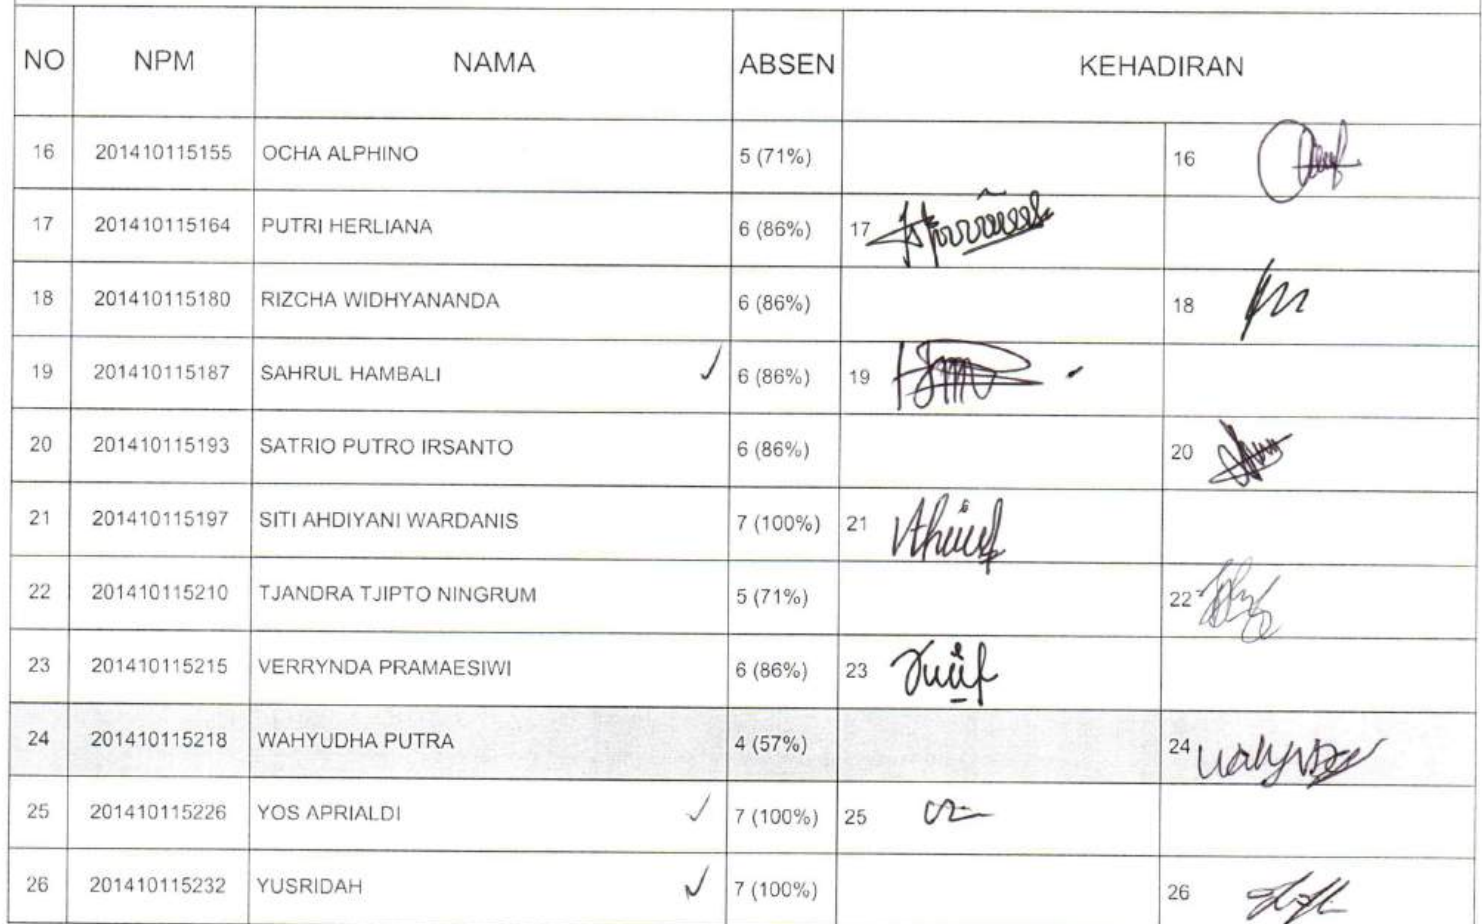 NO NPM NAMA ABSEN KEHADIRAN
16 201410115155 OCHA ALPHINO 5 (71%) 16
17 201410115164 PUTRI HERLIANA 6 (86%) 17
18 201410115180 RIZCHA WIDHYANANDA 6 (86%) 18
19 201410115187 SAHRUL HAMBALI ✓ 6 (86%) 19
20 201410115193 SATRIO PUTRO IRSANTO 6 (86%) 20
21 201410115197 SITI AHDIYANI WARDANIS 7 (100%) 21
22 201410115210 TJANDRA TJIPTO NINGRUM 5 (71%) 22
23 201410115215 VERRYNDA PRAMAESIWI 6 (86%) 23
24 201410115218 WAHYUDHA PUTRA 4 (57%) 24
25 201410115226 YOS APRIALDI ✓ 7 (100%) 25
26 201410115232 YUSRIDAH ✓ 7 (100%) 26